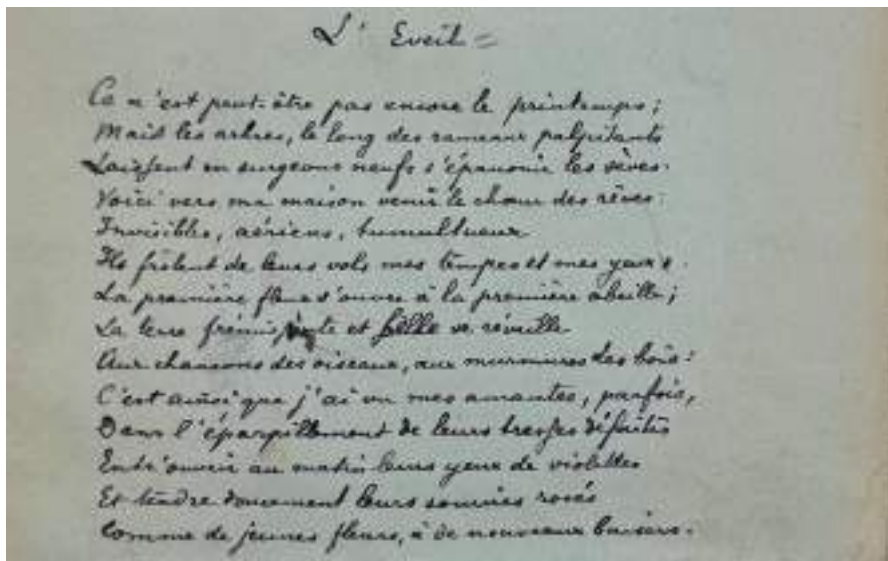 L' Eveil =
Ce n'est peut-être pas encore le printemps;
Mais les arbres, le long des rameaux palpitants
Laissent en surgeons neufs s'épanouir les sèves.
Voici vers ma maison venir le chœur des rêves:
Invisibles, aériens, tumultueux
Ils frôlent de leurs vols mes tempes et mes yeux.
La première fleur s'ouvre à la première abeille;
La terre frémissante et belle se réveille
Aux chansons des oiseaux, aux murmures des bois:
C'est ainsi que j'ai vu mes amantes, parfois,
Dans l'éparpillement de leurs tresses défaites
Entr'ouvrir au matin leurs yeux de violettes
Et tendre doucement leurs sourires rosés
Comme de jeunes fleurs, à de nouveaux baisers.